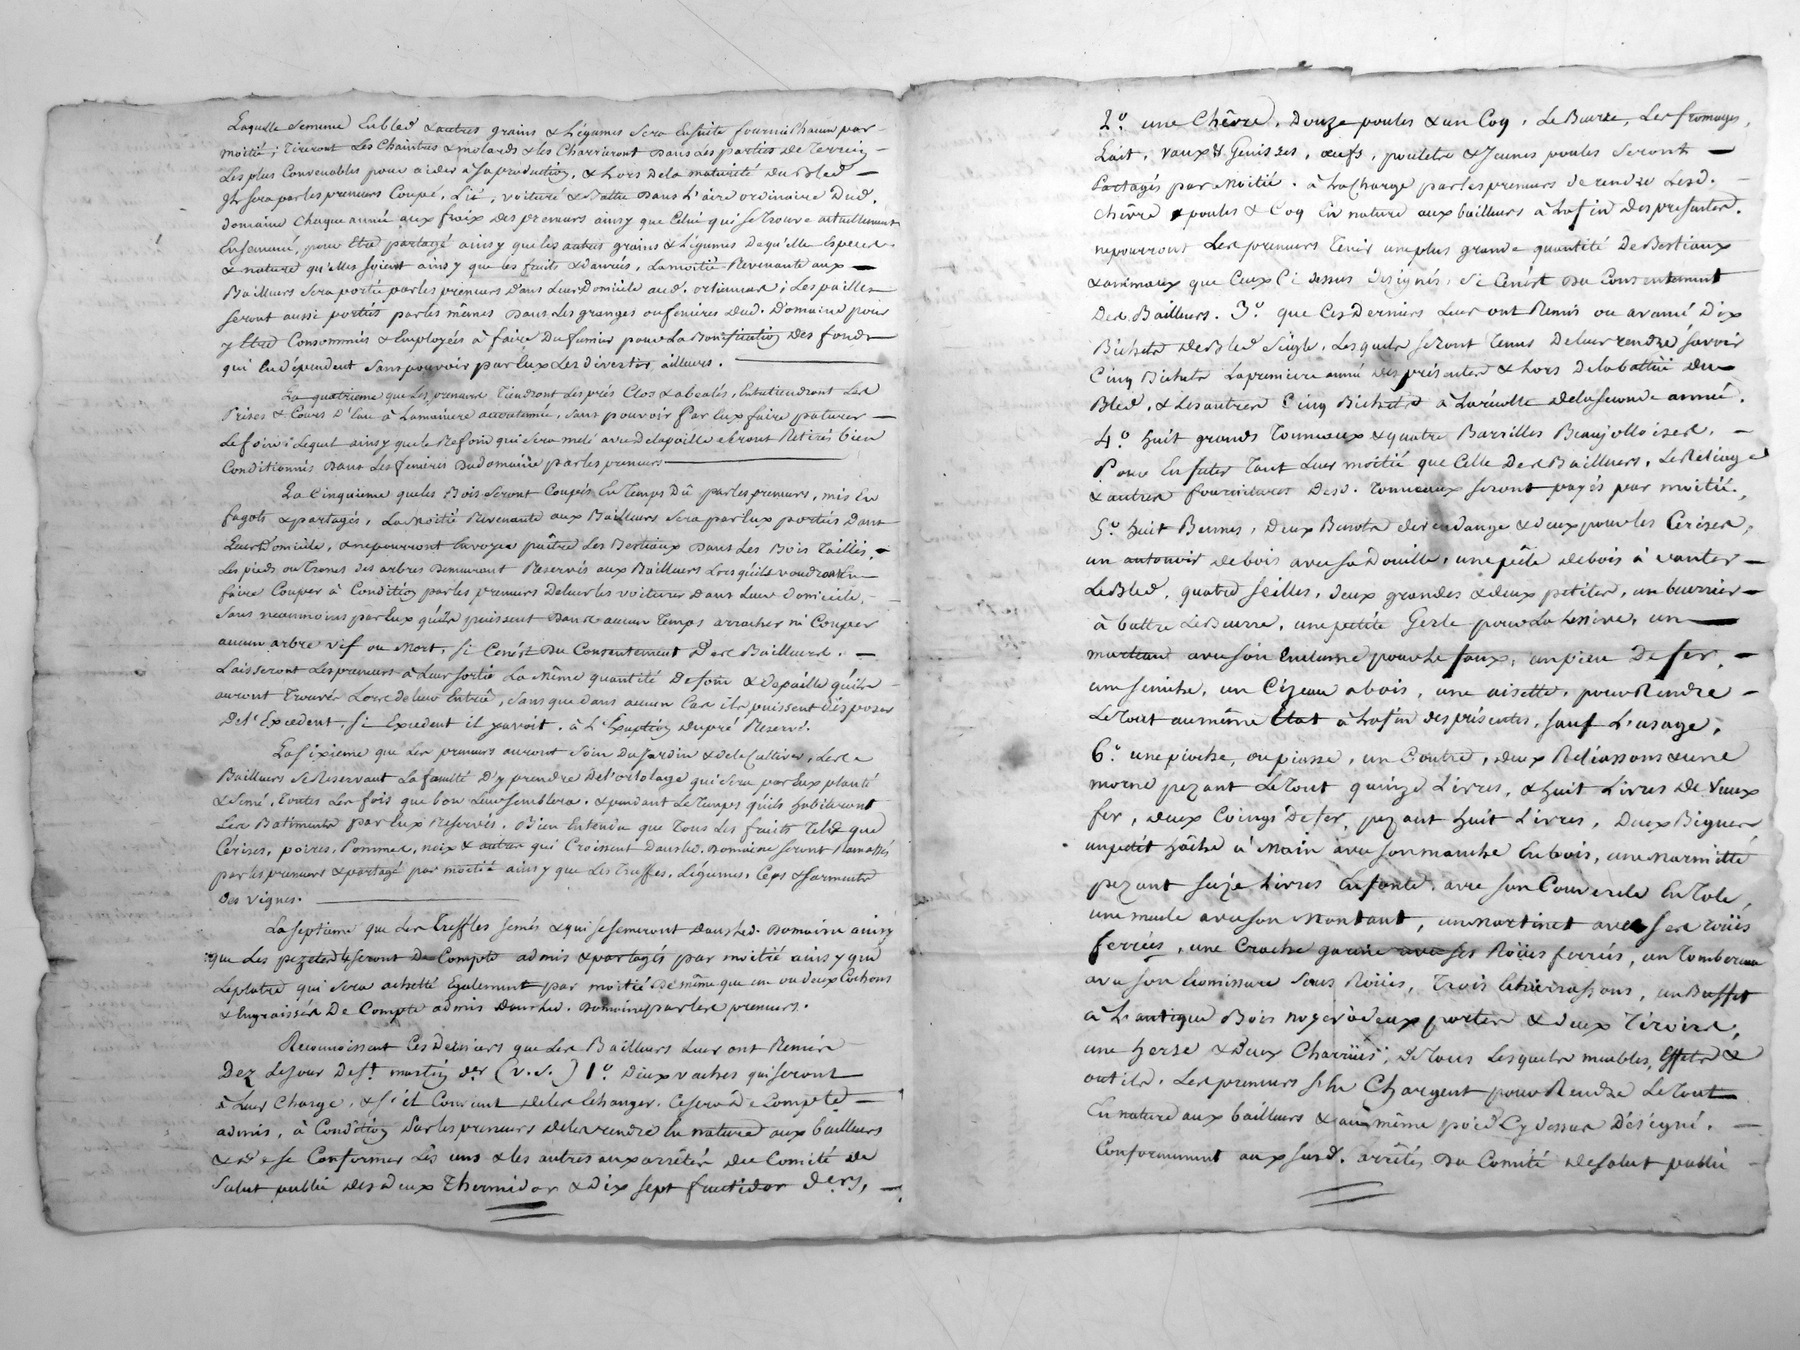 Laquelle Semence En bled & autres grains & Légumes Sera Ensuite fournie Chacun par
moitié; Tireront Les Chaintres & molards & les Charrieront Dans Les parties De Terrein
Les plus Convenables pour aider à Sa production, & hors De la maturité Du Bled
Jl Sera par les preneurs Coupé, Lié, voituré & Battu Dans L'aire ordinaire Dud.
domaine Chaque année aux fraix Des preneurs ainsy que Celui qui se Trouve actuellement
Ensemencé, pour Etre partagé ainsy que les autres grains & Légumes De qu'elle Espece
& nature qu'elles soient ainsy que les fruits & danrées, La moitié Revenante aux
Bailleurs Sera portée par les preneurs Dans Leur Domicile aud. ; Les pailles
Seront aussi portées par les mêmes Dans Les granges ou feniéres Dud. Domaine pour
y Etre Consommées & Employées à faire Du fumier pour La Bonification Des fonds
qui En dépendent Sans pouvoir par Eux Les Divertir ailleurs.
La quatrieme que Les preneurs Tiendront Les prés Clos & abealés, Entretiendront Les
Prises & Cours D'Eau à La maniere accoutumée, Sans pouvoir par Eux faire paturer
Le foin; Lequel ainsy que le Refoin qui Sera melé avec De la paille Seront Retirés bien
Conditionnés Dans Les feniéres Du domaine par les preneurs
La Cinquieme que les Bois Seront Coupés En Temps Dû par les preneurs, mis En
fagots & partagés, La Moitié Revenante aux Bailleurs Sera par Eux portée Dans
Leur Domicile, & ne pourront Envoyer paître Les Bestiaux Dans Les Bois Taillis,
Les pieds ou Troncs Des arbres Demeurant Reservés aux Bailleurs Lors qu'ils voudront En
faire Couper à Condition par les preneurs De leur les voiturer Dans Leur Domicile,
Sans neanmoins par Eux qu'ils puissent Dans aucun Temps arracher ni Couper
aucun arbre vif ou Mort, Si Ce n'ést Du Consentement Des Bailleurs.
Laisseront Les preneurs à Leur Sortie La Même quantité De foin & De paille qu'ils
auront Trouvés Lors de leur Entrée, Sans que Dans aucun Cas ils puissent Disposer
De L'Excedent, Si Excedent il y avoit, à L'Exeption Du pré Reservé.
La Sixieme que Les preneurs auront Soin Du Jardin & de le Cultiver, Les
Bailleurs Se Reservant La faculté D'y prendre De l'ortolage qui Sera par Eux planté
& Semé, Toutes Les fois que bon Leur Semblera, & pendant Le Temps qu'ils habiteront
Les Batiments par Eux Reservés. Bien Entendu que Tous Les fruits Tels que
Cérises, poires, Pommes, noix & autres qui Croissent Dans Led. Domaine Seront Ramassés
par les preneurs & partagé par moitié ainsy que Les Truffes, Légumes, Ceps & Sarments
Des vignes.
La Septieme que Les Treffles Semés & qui Se Semeront Dans Led. Domaine ainsy
que Les Seront De Compte admis & partagés par moitié ainsy que
Le platre qui Sera achetté Egalement par moitié De même que un ou deux Cochons
& Engraissés De Compte admis Dans Led. Domaine par les preneurs.
Reconnoissent Ces Derniers que Les Bailleurs Leur ont Remis
Dez Le Jour De St. martin der (v. S.) 1°. Deux vaches qui Seront
à Leur Charge, & s'il Convient De les Echanger, Ce Sera De Compte
admis, à Condition Par les preneurs De les rendre En nature aux bailleurs
& De Se Conformer Les uns & les autres aux arrêtés Du Comité De
Salut public Des Deux Thermidor & Dix Sept fructidor Ders,
2°. une Chévre, Douze poules & un Coq. Le Beurre, Les fromages,
Lait, vaux & Genisses, œufs, pouletre & Jeunes poules Seront
Partagés par Moitié. à La Charge par les preneurs De rendre Lesd.
Chêvre & poules & Coq En nature aux bailleurs à La fin Des presentes.
ne pourront Les preneurs Tenir une plus grande quantité De Bestiaux
& animaux que Ceux Ci dessus Désignés, Si Ce n'ést Du Consentement
Des Bailleurs. 3°. que Ces Derniers Leur ont Remis ou avancé Dix
Bichets De Bled Seigle, Lesquels Seront Tenus De leur rendre Savoir
Cinq Bichets La premiere année Des présentes & Lors De la battüe Du
Bled, & Les autres Cinq Bichets à La récolte De la Seconde année.
4°. huit grands Tonneaux & quatre Barrilles Beaujolloises.
Pour En futer Tant Leur moitié que Celle Des Bailleurs. Le Reliage
& autres fournitures Desd. Tonneaux Seront payés par moitié.
5°. huit Bennes, Deux De vendange & deux pour les Cerises,
un entonoir De bois avec Sa Douille, une pêle De bois à vanter
Le Bled, quatre Seilles, Deux grandes & Deux petites, un beurrier
à battre Le Beurre, une petite Gerle pour La Lessive, un
marteau avec Son Enclume pour Le faux, un pieu De fer,
une , un Cizeau a bois, une aisette, pour Rendre
Le Tout au même Etat à La fin Des présentes, Sauf L'usage,
6°. une pioche, ou piasse, un Coutre, Deux Reliassons & une
morne pezant Le Tout quinze Livres, & huit Livres De vieux
fer, Deux Coings De fer, pezant huit Livres, Deux Bigues
un petit hâche à Main avec Son manche En bois, une marmitte
pezant Seize Livres En fonte, avec Son Couvercle En Tole,
une meule avec Son Montant, un Martinet avec Ses roües
ferrées, une garnie avec Ses Roües ferrées, un Tombereau
avec Son Sans Roües, Trois , un Buffet
à L'antique Bois noyer à Deux portes & Deux Tiroirs,
une herse & Deux Charrües; De Tous Lesquels meubles, Effets &
outils, Les preneurs Se Chargent pour Rendre Le Tout
En nature aux bailleurs & au même poid Cy dessus Désigné,
Conformement aux Susd. arrêtés Du Comité De Salut public